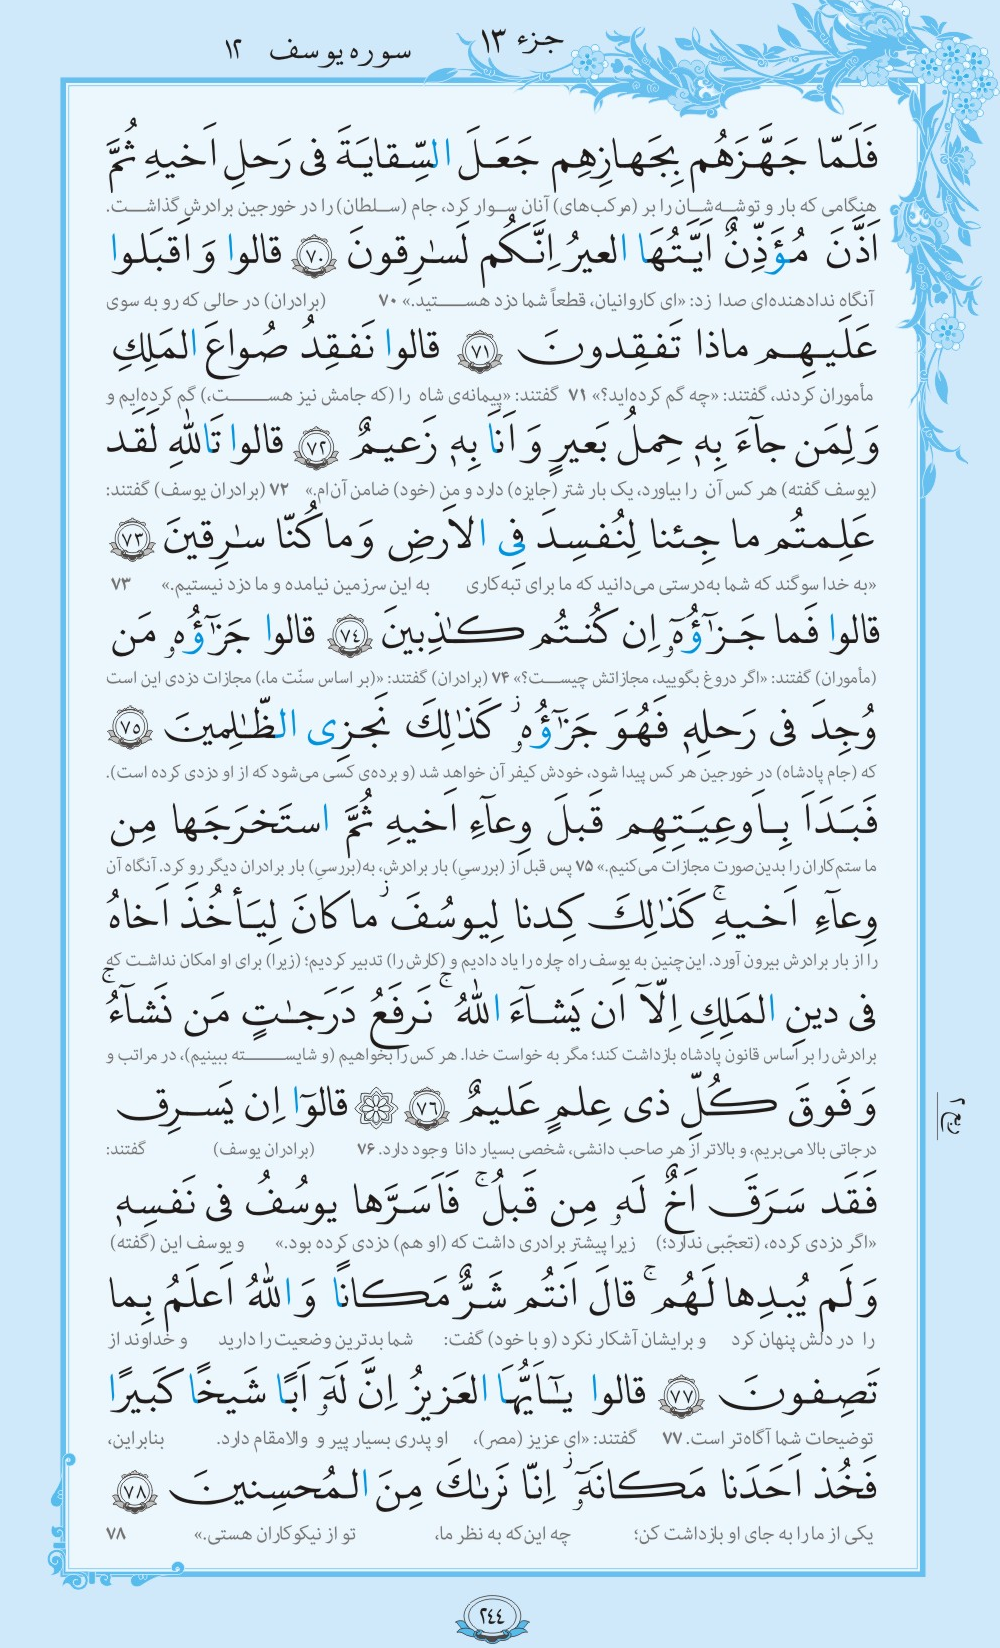 جزء ۱۳
سوره یوسف ۱۲
فَلَمّا جَهَّزَهُم بِجَهازِهِم جَعَلَ السِّقایَةَ فی رَحلِ اَخیهِ ثُمَّ
هنگامی که بار و توشه‌شان را بر (مرکب‌های) آنان سوار کرد، جام (سلطان) را در خورجین برادرش گذاشت.
اَذَّنَ مُؤَذِّنٌ اَیَّتُهَا العیرُ اِنَّکُم لَسٰرِقونَ ﴿۷۰﴾ قالوا وَ اَقبَلوا
آنگاه ندادهنده‌ای صدا زد: «ای کاروانیان، قطعاً شما دزد هستید.» ۷۰ (برادران) در حالی که رو به سوی
عَلَیهِم ماذا تَفقِدونَ ﴿۷۱﴾ قالوا نَفقِدُ صُواعَ المَلِکِ
مأموران کردند، گفتند: «چه گم کرده‌اید؟» ۷۱ گفتند: «پیمانه‌ی شاه را (که جامش نیز هست،) گم کرده‌ایم و
وَ لِمَن جآءَ بِهٖ حِملُ بَعیرٍ وَ اَنَا بِهٖ زَعیمٌ ﴿۷۲﴾ قالوا تَاللّٰهِ لَقَد
(یوسف گفته) هر کس آن را بیاورد، یک بار شتر (جایزه) دارد و من (خود) ضامن آن‌ام.» ۷۲ (برادران یوسف) گفتند:
عَلِمتُم ما جِئنا لِنُفسِدَ فِی الاَرضِ وَ ما کُنّا سٰرِقینَ ﴿۷۳﴾
«به خدا سوگند که شما به‌درستی می‌دانید که ما برای تبه‌کاری به این سرزمین نیامده و ما دزد نیستیم.» ۷۳
قالوا فَما جَزٰٓؤُهٗٓ اِن کُنتُم کٰذِبینَ ﴿۷۴﴾ قالوا جَزٰٓؤُهٗ مَن
(مأموران) گفتند: «اگر دروغ بگویید، مجازاتش چیست؟» ۷۴ (برادران) گفتند: «(بر اساس سنّت ما،) مجازات دزدی این است
وُجِدَ فی رَحلِهٖ فَهُوَ جَزٰٓؤُهٗ ز کَذٰلِکَ نَجزِی الظّٰلِمینَ ﴿۷۵﴾
که (جام پادشاه) در خورجین هر کس پیدا شود، خودش کیفر آن خواهد شد (و برده‌ی کسی می‌شود که از او دزدی کرده است).
فَبَدَاَ بِاَوعِیَتِهِم قَبلَ وِعآءِ اَخیهِ ثُمَّ استَخرَجَها مِن
ما ستم‌کاران را بدین‌صورت مجازات می‌کنیم.» ۷۵ پس قبل از (بررسیِ) بار برادرش، به (بررسیِ) بار برادران دیگر رو کرد. آنگاه آن
وِعآءِ اَخیهِ ج کَذٰلِکَ کِدنا لِیوسُفَ ز ما کانَ لِیَأخُذَ اَخاهُ
را از بار برادرش بیرون آورد. این‌چنین به یوسف راه چاره را یاد دادیم و (کارش را) تدبیر کردیم؛ (زیرا) برای او امکان نداشت که
فی دینِ المَلِکِ اِلّآ اَن یَشآءَ اللّٰهُ ج نَرفَعُ دَرَجٰتٍ مَن نَشآءُ ج
برادرش را بر اساس قانون پادشاه بازداشت کند؛ مگر به خواست خدا. هر کس را بخواهیم (و شایسته ببینیم)، در مراتب و
وَ فَوقَ کُلِّ ذی عِلمٍ عَلیمٌ ﴿۷۶﴾ قالوٓا اِن یَسرِق
درجاتی بالا می‌بریم، و بالاتر از هر صاحب دانشی، شخصی بسیار دانا وجود دارد. ۷۶ (برادران یوسف) گفتند:
ربع ۲
فَقَد سَرَقَ اَخٌ لَهٗ مِن قَبلُ ج فَاَسَرَّها یوسُفُ فی نَفسِهٖ
«اگر دزدی کرده، (تعجّبی ندارد؛) زیرا پیشتر برادری داشت که (او هم) دزدی کرده بود.» و یوسف این (گفته)
وَ لَم یُبدِها لَهُم ج قالَ اَنتُم شَرٌّ مَکانًا وَ اللّٰهُ اَعلَمُ بِما
را در دلش پنهان کرد و برایشان آشکار نکرد (و با خود) گفت: شما بدترین وضعیت را دارید و خداوند از
تَصِفونَ ﴿۷۷﴾ قالوا یٰٓاَیُّهَا العَزیزُ اِنَّ لَهٗٓ اَبًا شَیخًا کَبیرًا
توضیحات شما آگاه‌تر است. ۷۷ گفتند: «ای عزیز (مصر)، او پدری بسیار پیر و والامقام دارد. بنابراین،
فَخُذ اَحَدَنا مَکانَهٗٓ ز اِنّا نَرٰىکَ مِنَ المُحسِنینَ ﴿۷۸﴾
یکی از ما را به جای او بازداشت کن؛ چه این‌که به نظر ما، تو از نیکوکاران هستی.» ۷۸
۲۴۴